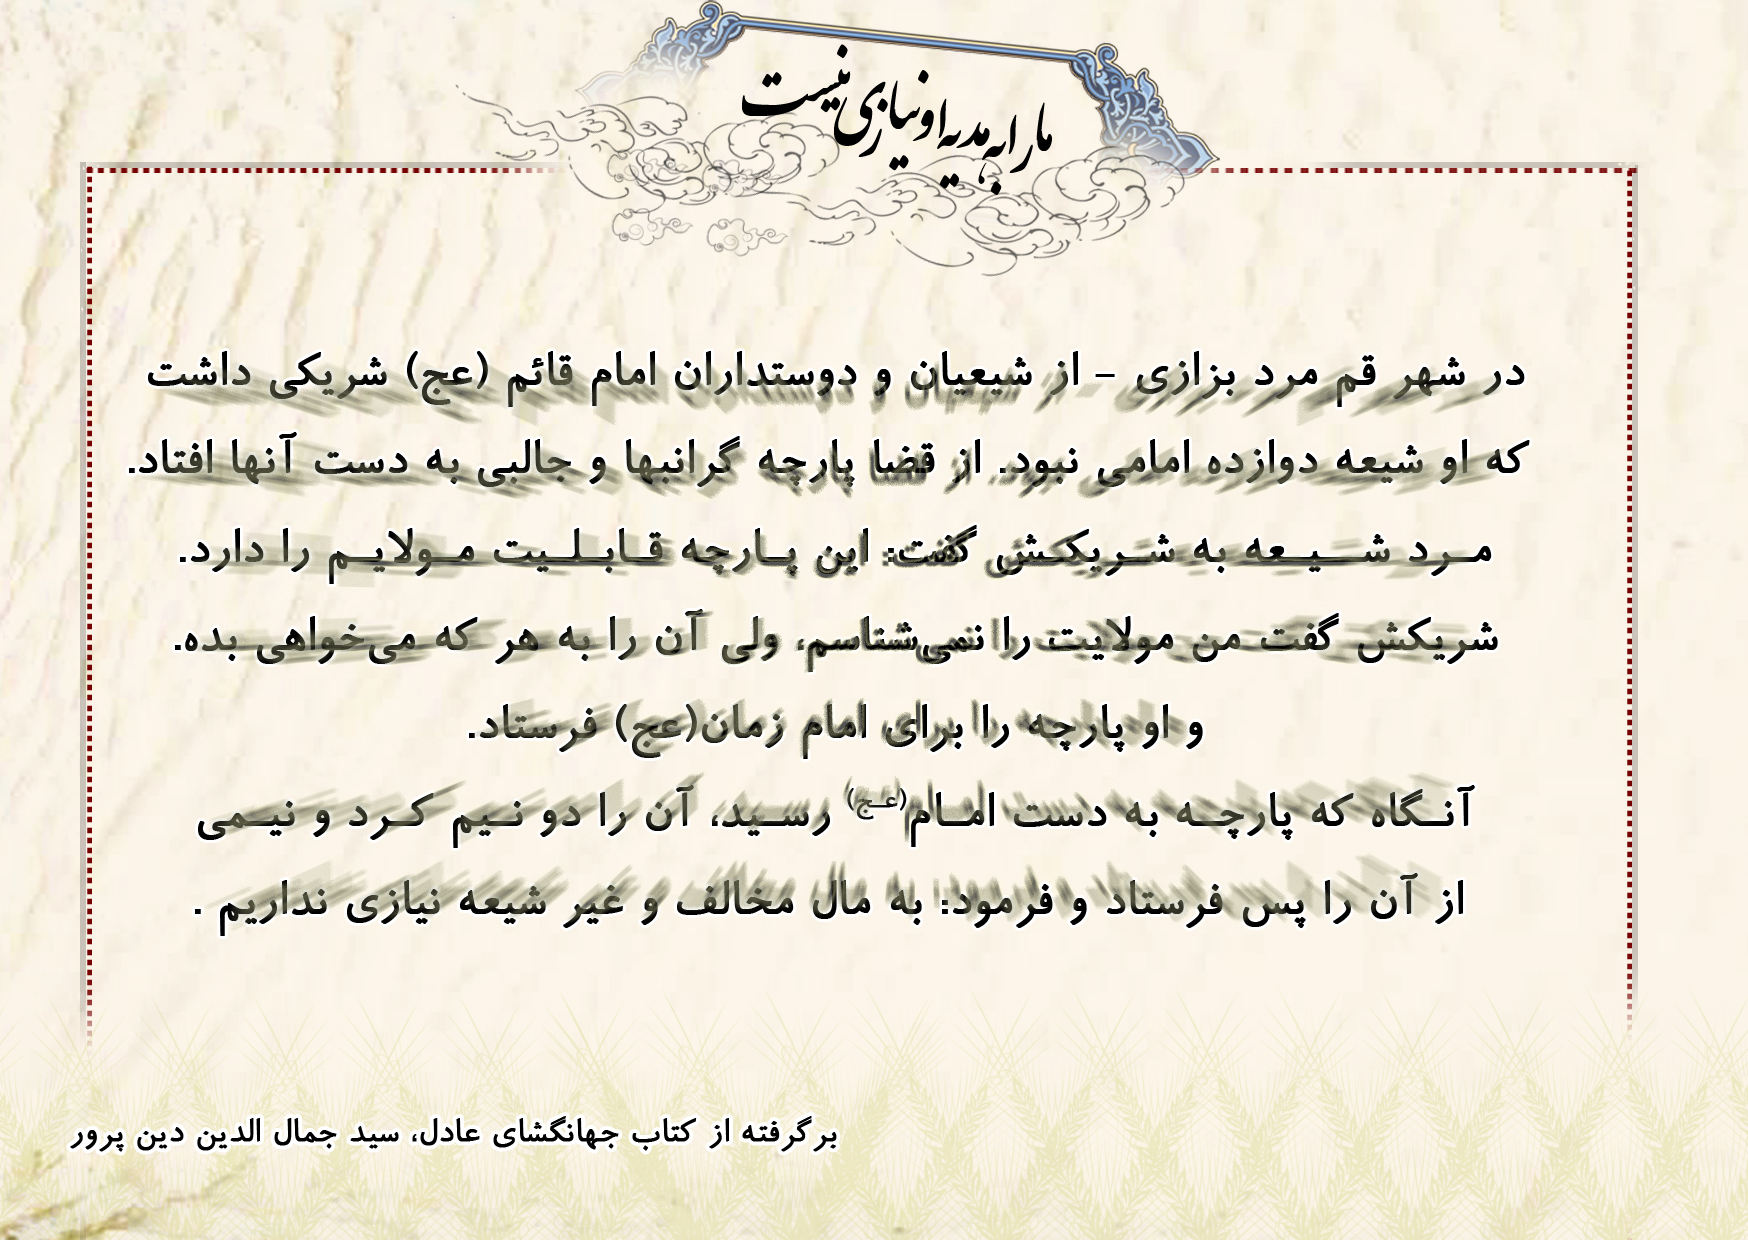 ما را به هدیه او نیازی نیست
در شهر قم مرد بزازی - از شیعیان و دوستداران امام قائم (عج) شریکی داشت
که او شیعه دوازده امامی نبود. از قضا پارچه گرانبها و جالبی به دست آنها افتاد.
مـرد شـیـعه به شـریکـش گفت: این پـارچه قـابـلـیت مـولایـم را دارد.
شریکش گفت من مولایت را نمی‌شناسم، ولی آن را به هر که می‌خواهی بده.
و او پارچه را برای امام زمان(عج) فرستاد.
آنـگاه که پارچـه به دست امـام(عـج) رسـید، آن را دو نـیم کـرد و نیـمی
از آن را پس فرستاد و فرمود: به مال مخالف و غیر شیعه نیازی نداریم .
برگرفته از کتاب جهانگشای عادل، سید جمال الدین دین پرور